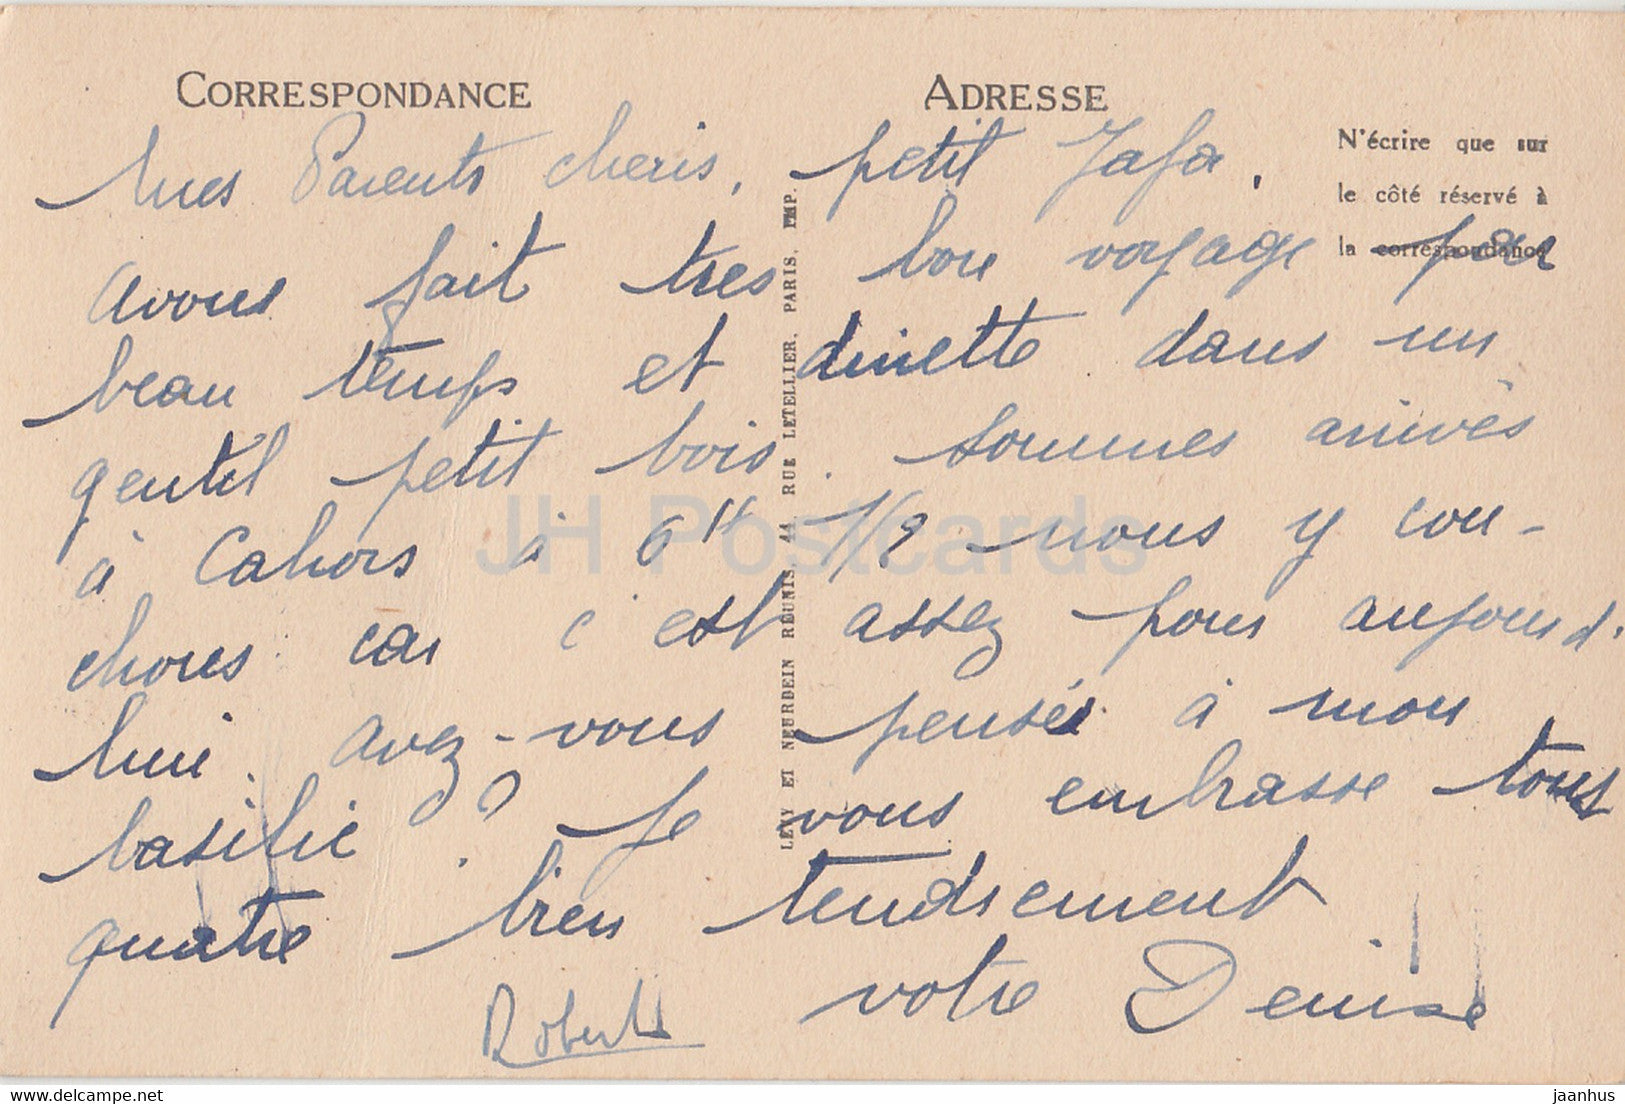 CORRESPONDANCE
ADRESSE
N'écrire que sur
le côté réservé à
la correspondance
Mes Parents cheris, petit Jafa,
Avons fait tres bon voyage par
beau temps et dinette dans un
gentil petit bois. Sommes arrivés
à Cahors à 6H 1/2 nous y cou-
chons car c'est assez pour aujourd'
hui. Avez-vous pensés à mon
basilic ? Je vous embrasse tous
quatre bien tendrement
votre Denise
Robert
LÉVY ET NEURDEIN RÉUNIS, 44, RUE LETELLIER, PARIS, IMP.
JH Postcards
eBay.com
jaanhus